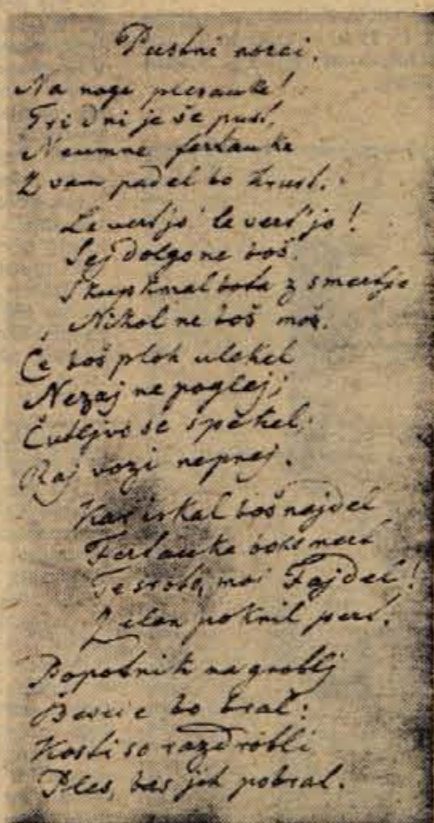 Pustni norci.
Na noge plesauke!
Tri dni je še pust,
Neumne ferlauke
Z vam padel bo hrust.
Le vert jo! le vert jo!
Sej dolgo ne boš.
Skup kmal bota z smertjo
Nikol ne boš mož.
Če boš ploh ulekel
Nezaj ne poglej;
Čutljivo se spekel,
Raj vozi neprej.
Kar iskal boš najdel
Ferlauka boks mert
Te, moi Fajdel!
Zelen pokril pert.
Popotnik na groblj
Besie bo bral:
Kosti so razdrobli
Ples, bas jeh pobral.